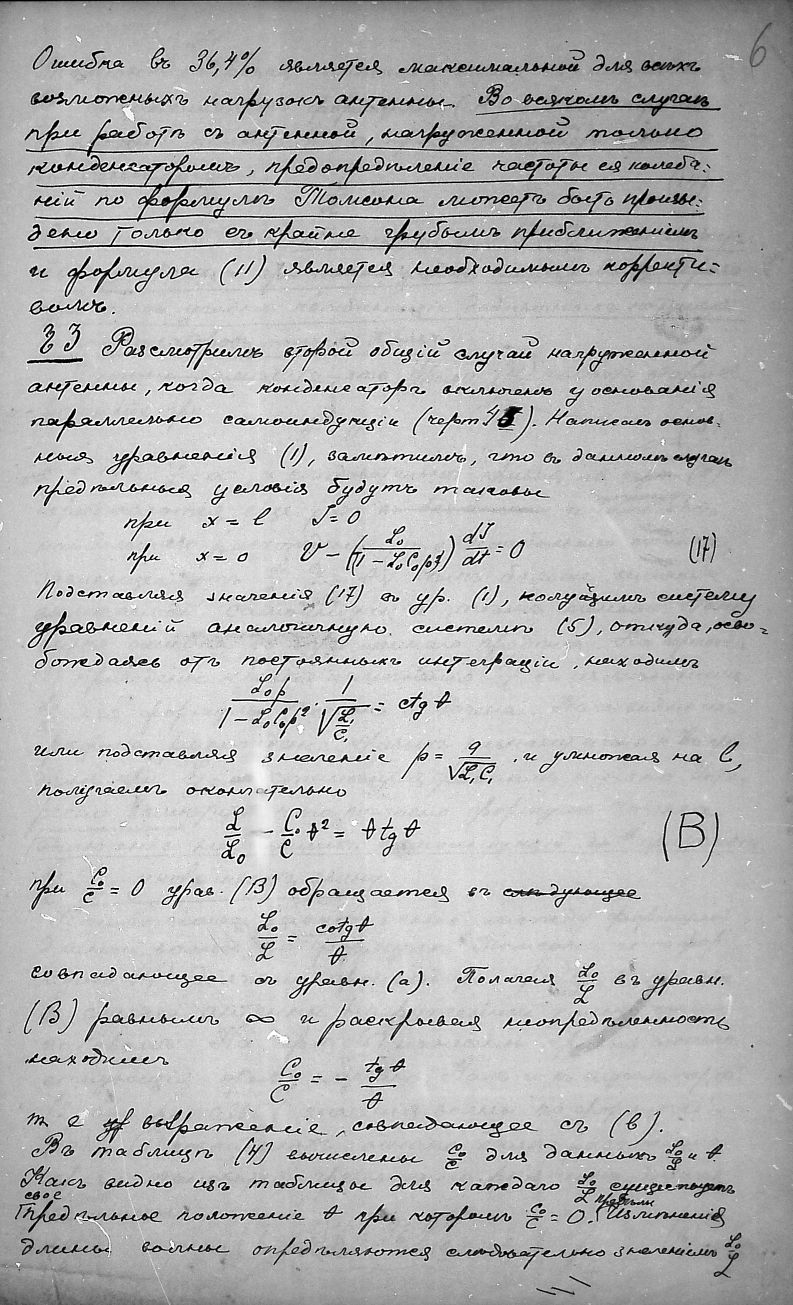 6
Ошибка въ 36,4% является максимальной для всѣхъ
возможныхъ нагрузокъ антенны. Во всякомъ случаѣ
при работѣ съ антенной, нагруженной только
конденсаторомъ, предопредѣленіе частоты ея колеба=
ній по формулѣ Томсона можетъ быть произве=
дено только съ крайне грубымъ приближеніемъ
и формула (11) является необходимымъ корректи=
вомъ.
§3 Разсмотримъ второй общій случай нагруженной
антенны, когда конденсаторъ включенъ у основанія
параллельно самоиндукціи (черт 4). Написавъ основ-
ныя уравненія (1), замѣтимъ, что въ данномъ случаѣ
предѣльныя условія будутъ таковы
при x = l J = 0
при x = 0 V − (L₀ / 1 − L₀C₀p²) dJ/dt = 0 (17)
Подставляя значенія (17) въ ур. (1), получимъ систему
уравненій аналогичную системѣ (5), откуда, осво=
бождаясь отъ постоянныхъ интеграціи, находимъ
L₀p / 1 − L₀C₀p² · 1 / √(L₁/C₁) = ctg θ
или подставляя значеніе p = q / √(L₁C₁) и умножая на l,
получаемъ окончательно
L/L₀ − C₀/C θ² = θ tg θ (B)
при C₀/C = 0 урав. (B) обращается въ слѣдующее
L₀/L = cotg θ / θ
совпадающее съ уравн. (а). Полагая L₀/L въ уравн.
(B) равнымъ ∞ и раскрывая неопредѣленность
находимъ
C₀/C = − tg θ / θ
т е выраженіе, совпадающее съ (в).
Въ таблицѣ (4) вычислены C₀/C для данныхъ L₀/L и θ.
Какъ видно изъ таблицы для каждаго L₀/L существуетъ
свое предѣльное положеніе θ при которомъ C₀/C = 0. Предѣлы измѣненія
длины волны опредѣляются слѣдовательно значеніемъ L₀/L